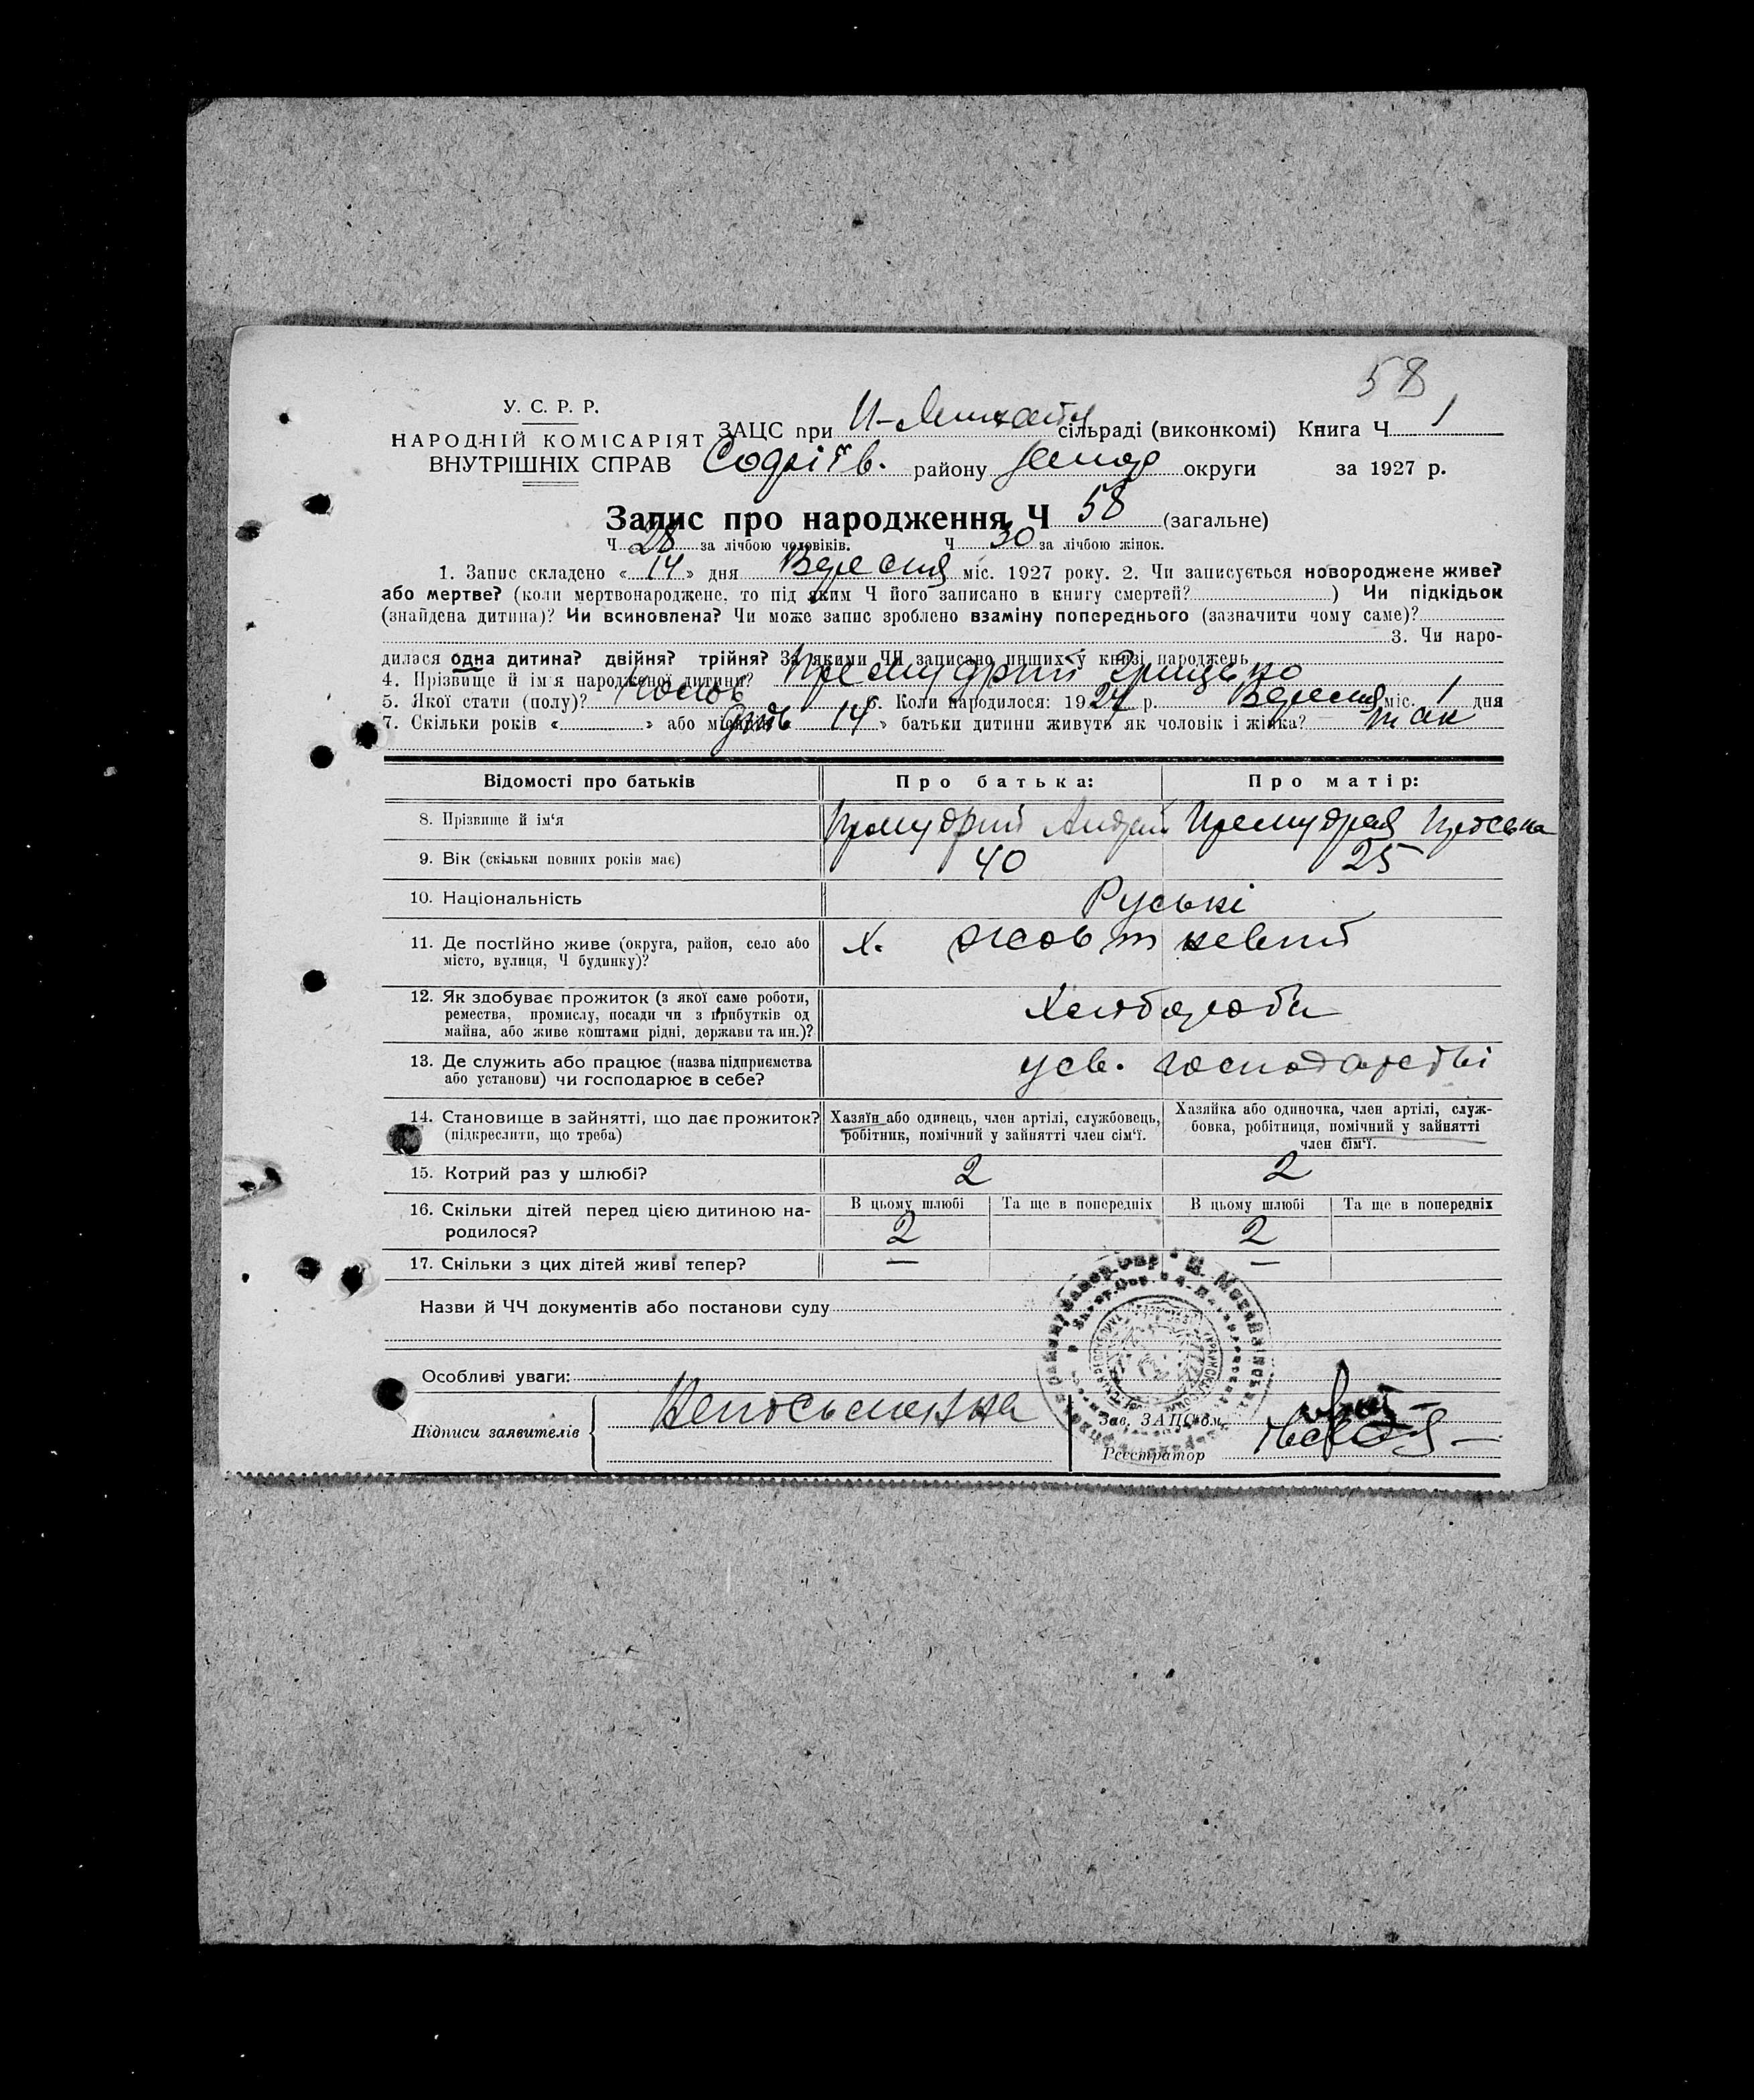 58
У. С. Р. Р.
НАРОДНІЙ КОМІСАРІЯТ
ВНУТРІШНІХ СПРАВ
ЗАЦС при сільраді (виконкомі) Книга Ч 1
району округи за 1927 р.
Запис про народження Ч 58 (загальне)
Ч 28 за лічбою чоловіків. Ч 30 за лічбою жінок.
1. Запис складено « 14 » дня Вересня міс. 1927 року. 2. Чи записується новороджене живе?
або мертве? (коли мертвонароджене, то під яким Ч його записано в книгу смертей? ) Чи підкідьок
(знайдена дитина)? Чи всиновлена? Чи може запис зроблено взаміну попереднього (зазначити чому саме)?
3. Чи наро-
дилася одна дитина? двійня? трійня? За якими ЧЧ записано инших у книзі народжень
4. Прізвище й ім'я народженої дитини? Премудрий Грицько
5. Якої стати (полу)? 6. Коли народилося: 1927 р. Вересня міс. 1 дня
7. Скільки років « » або місяців 14 » батьки дитини живуть як чоловік і жінка? так
Відомості про батьків Про батька: Про матір:
8. Прізвище й ім'я Премудрий Андрей Премудрая
9. Вік (скільки повних років має) 40 25
10. Національність Руські
11. Де постійно живе (округа, район, село або
місто, вулиця, Ч будинку)?
х.
12. Як здобуває прожиток (з якої саме роботи,
ремества, промислу, посади чи з прибутків од
майна, або живе коштами рідні, держави та ин.)?
Хлібороби
13. Де служить або працює (назва підприємства
або установи) чи господарює в себе?
у св. господарстві
14. Становище в зайнятті, що дає прожиток?
(підкреслити, що треба)
Хазяїн або одинець, член артілі, службовець,
робітник, помічний у зайнятті член сім'ї.
Хазяйка або одиночка, член артілі, служ-
бовка, робітниця, помічний у зайнятті
член сім'ї.
15. Котрий раз у шлюбі? 2 2
16. Скільки дітей перед цією дитиною на-
родилося?
В цьому шлюбі Та ще в попередніх В цьому шлюбі Та ще в попередніх
2 2
17. Скільки з цих дітей живі тепер? — —
Назви й ЧЧ документів або постанови суду
Особливі уваги:
Підписи заявителів
Зав. ЗАЦС'ом
Реєстратор